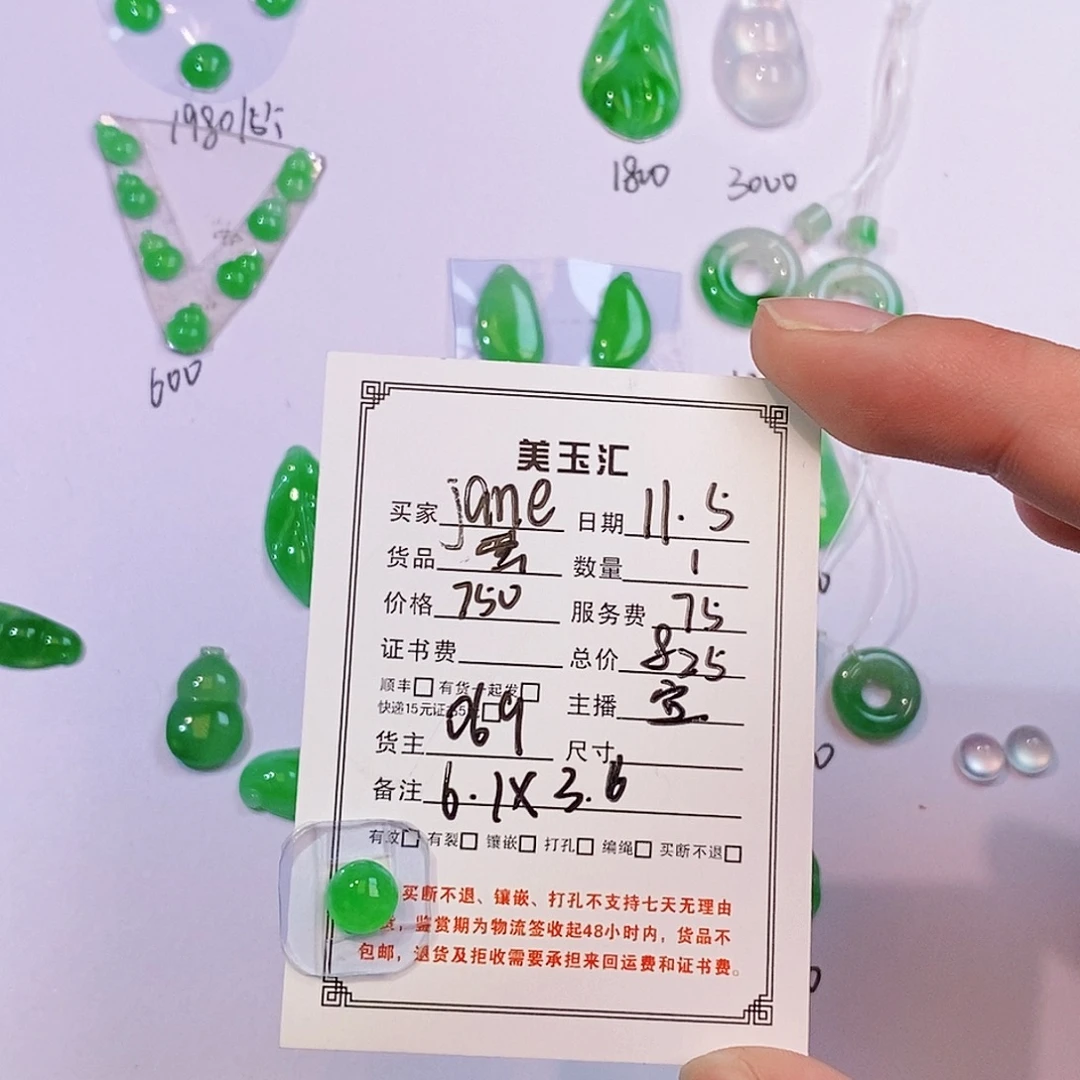 1980/
1800
3000
600
美玉汇
买家 jane 日期 11.5
货品 数量 1
价格 750 服务费 75
证书费 总价 825
顺丰□ 有货一起发□
快递15元证
主播
货主 069 尺寸
备注 6.1X3.6
有纹□ 有裂□ 镶嵌□ 打孔□ 编绳□ 买断不退□
买断不退、镶嵌、打孔不支持七天无理由
，鉴赏期为物流签收起48小时内，货品不
包邮，退货及拒收需要承担来回运费和证书费。